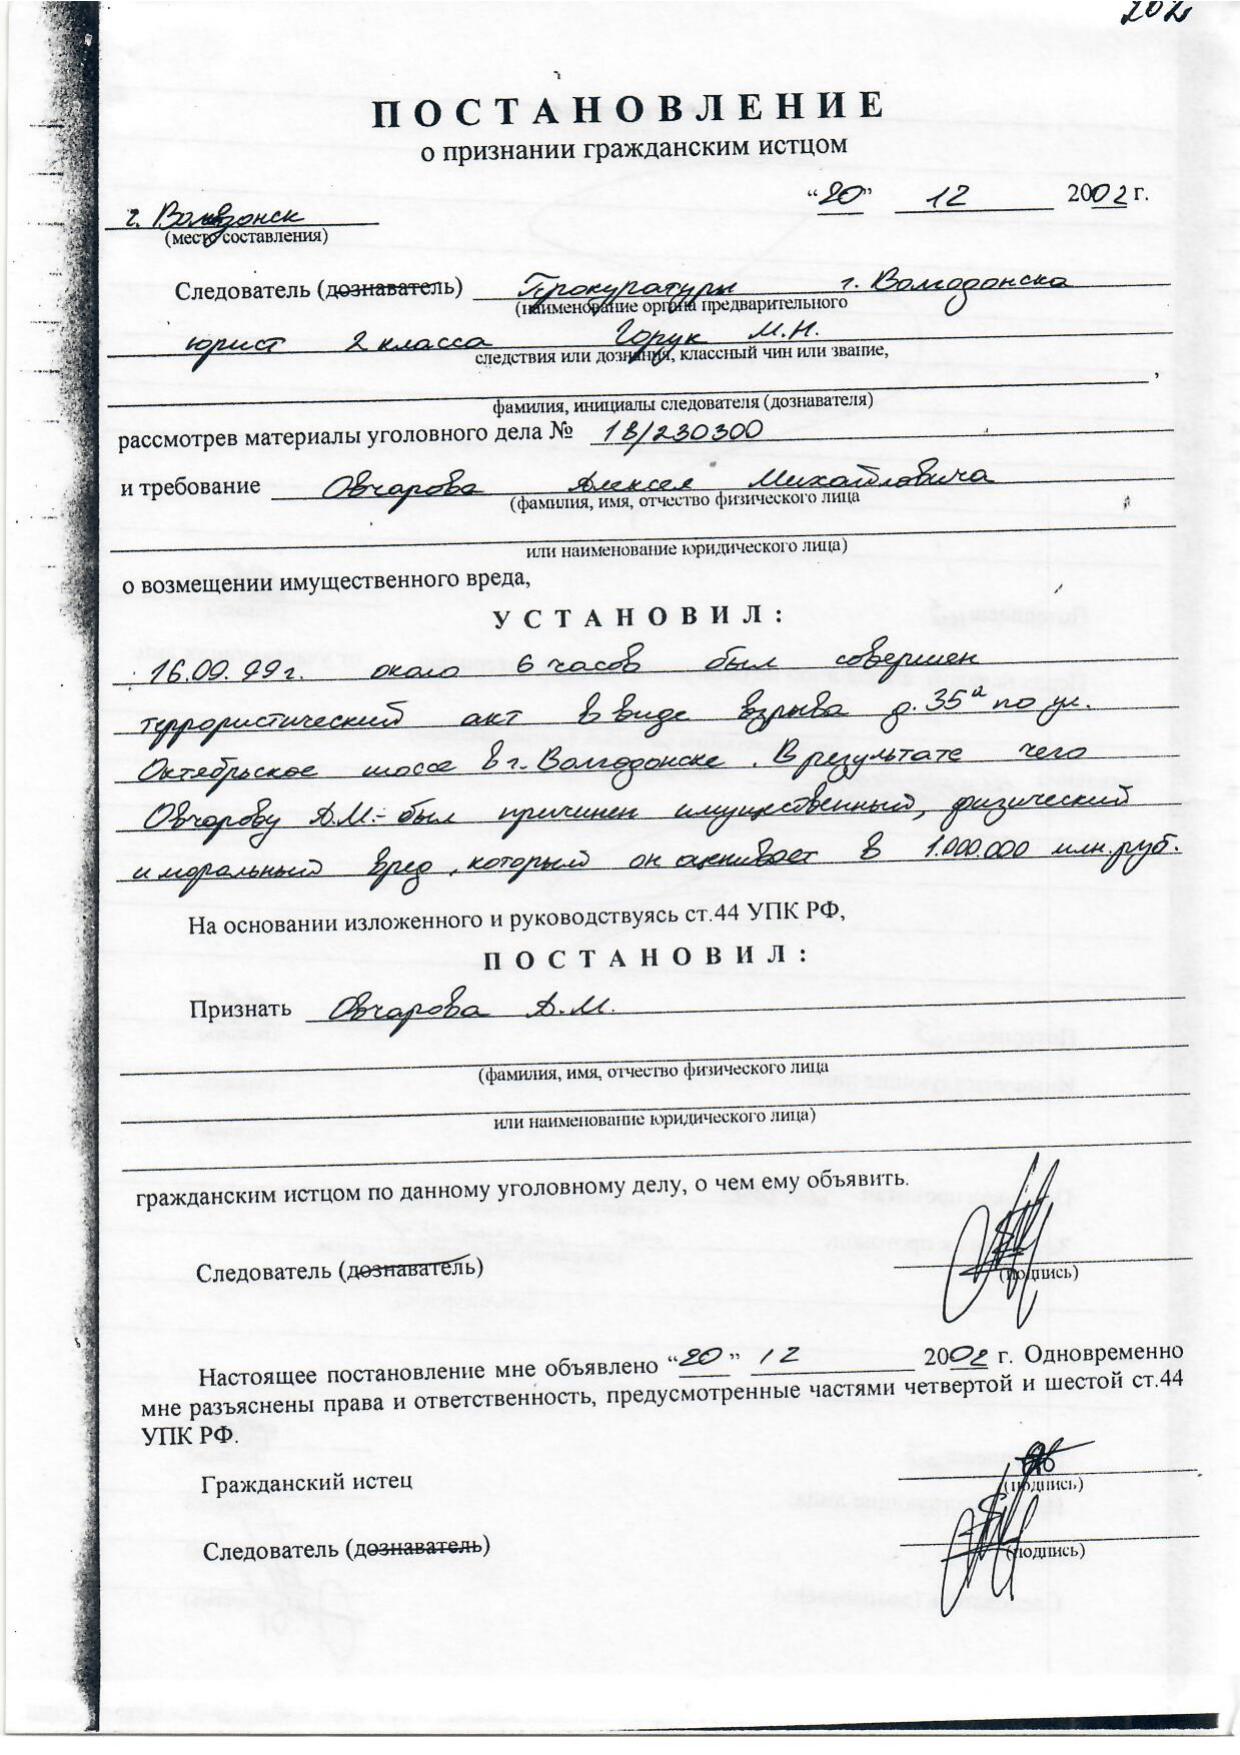 202
ПОСТАНОВЛЕНИЕ
о признании гражданским истцом
“20” 12 2002 г.
г. Волгодонск
(место составления)
Следователь (дознаватель) Прокуратуры г. Волгодонска
(наименование органа предварительного
юрист 2 класса Горук М.Н.
следствия или дознания, классный чин или звание,
,
фамилия, инициалы следователя (дознавателя)
рассмотрев материалы уголовного дела № 18/230300
и требование Овчарова Алексея Михайловича
(фамилия, имя, отчество физического лица
или наименование юридического лица)
о возмещении имущественного вреда,
УСТАНОВИЛ:
16.09.99г. около 6 часов был совершен
террористический акт в виде взрыва д.35а по ул.
Октябрьское шоссе в г. Волгодонске. В результате чего
Овчарову А.М.- был причинен имущественный, физический
и моральный вред, который он оценивает в 1.000.000 млн.руб.
На основании изложенного и руководствуясь ст.44 УПК РФ,
ПОСТАНОВИЛ:
Признать Овчарова А.М.
(фамилия, имя, отчество физического лица
или наименование юридического лица)
гражданским истцом по данному уголовному делу, о чем ему объявить.
Следователь (дознаватель)
(подпись)
Настоящее постановление мне объявлено “20” 12 2002 г. Одновременно
мне разъяснены права и ответственность, предусмотренные частями четвертой и шестой ст.44
УПК РФ.
Гражданский истец
(подпись)
Следователь (дознаватель)
(подпись)